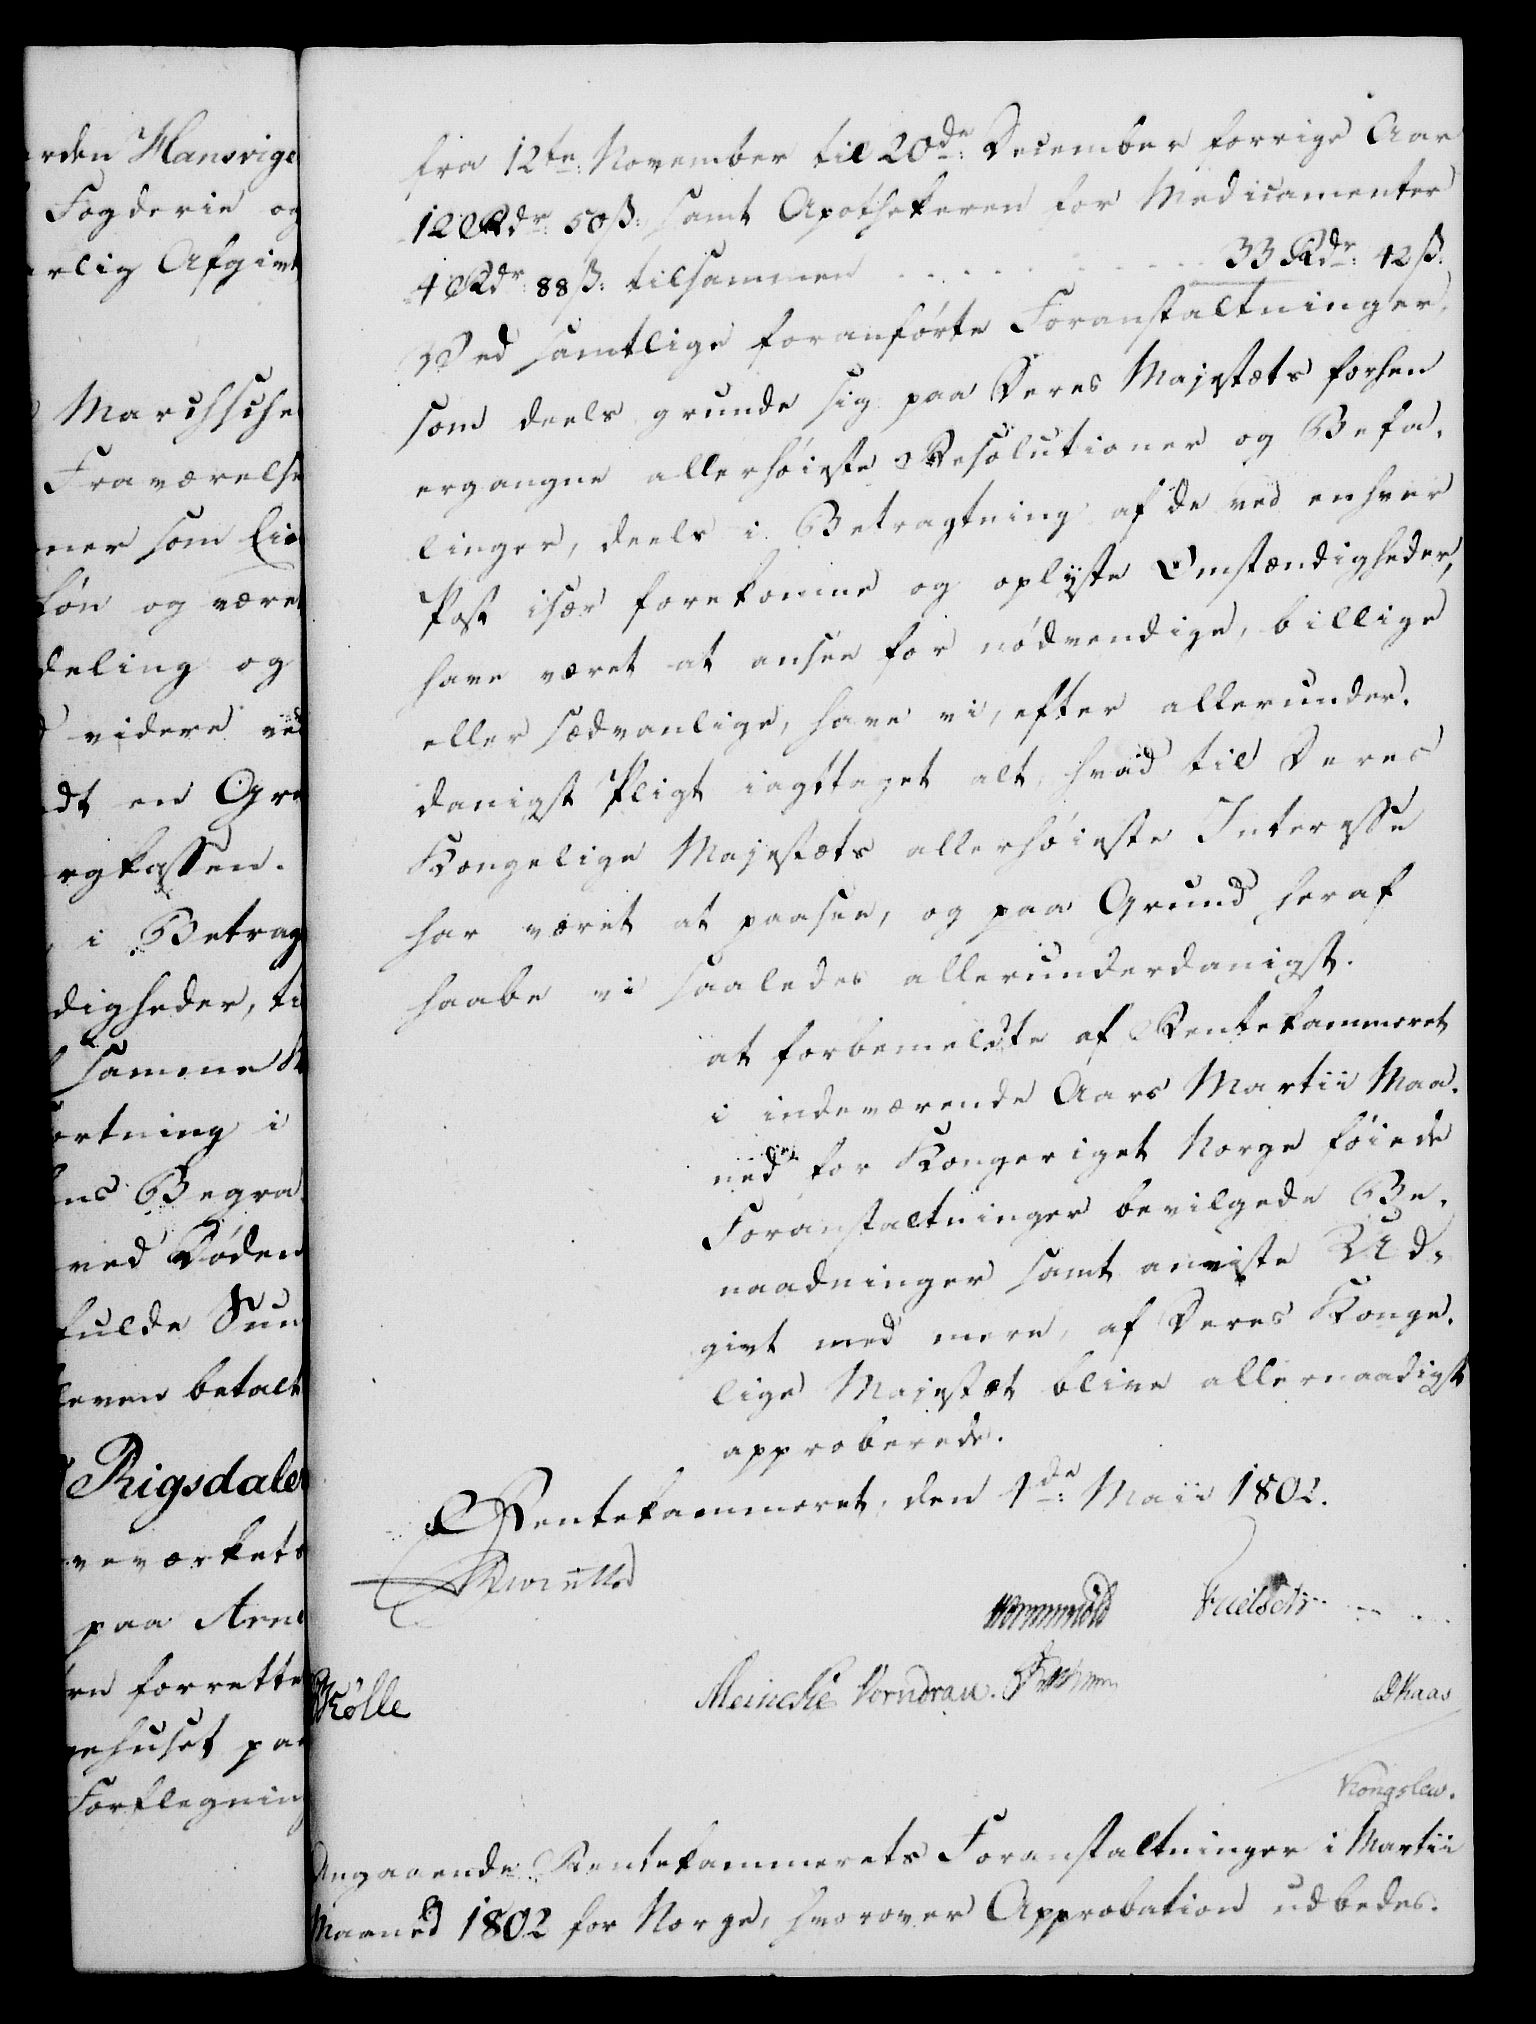 rden Hansvige
Fogderie og
rlig Afgivt
Marchsche
Fraværelse
ner som Lie
løn og være
deling og
videre ved
dt en Gra
rgkassen.
i Betrag
digheder, ti
samme
ortning i
ns Begra
ved Døden
fulde Sum
leven betalt
Rigsdaler
veværkets
paa Arne
rn forrette
ehuset paa
Forflegning
fra 12te November til 20de December forrige Aar
12 Rdr: 50 ß: samt Apothekeren for Medicamenter
4 Rdr: 88 ß: tilsammen . . . . . . . . . . 33 Rdr: 42 ß:
Ved samtlige foranførte Foranstaltninger,
som deels grunde sig paa Deres Majestæts forhen
ergangne allerhøieste Resolutioner og Befa-
linger, deels i Betragtning af de ved enhver
Post især forekomne og oplyste Omstændigheder,
have været at ansee for nødvendige, billige
eller sædvanlige, have vi, efter allerunder-
danigst Pligt iagttaget alt hvad til Deres
Kongelige Majestæts allerhøieste Interesse
har været at paasee, og paa Grund heraf
haabe vi saaledes allerunderdanigst.
at forbemeldte af Rentekammeret
i indeværende Aars Martii Maa-
ned for Kongeriget Norge føiede
Foranstaltninger bevilgede Be-
naadninger samt anviste Ud-
givt med mere, af Deres Konge-
lige Majestæt blive allernaadigst
approberede.
Rentekammeret, den 1de Maii 1802.
Reventlow
Wormskiold
Kølle
Meincke Vorndran.
Kaas
Kongslew.
Angaaende Rentekammerets Foranstaltninger i Martii
Maaned 1802 for Norge, hvorover Approbation udbedes.